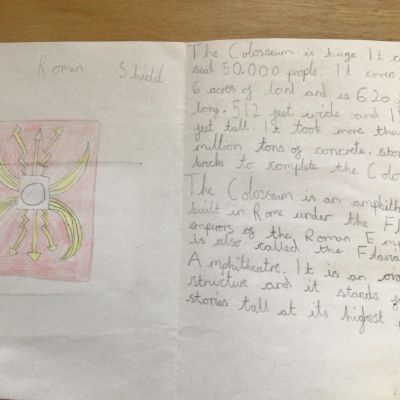 Roman Shield
The Colosseum is huge. It c
seat 50,000 people. It cover
6 acres of land and is 620
long, 512 feet wide and 1
feet tall. It took more tha
million tons of concrete, sto
bricks to complete the Colo
The Colosseum is an amphith
built in Rome under the Fl
emperors of the Roman Emp
is also called the Flavia
Amphitheatre. It is an ova
structure and it stands f
stories tall at its highest